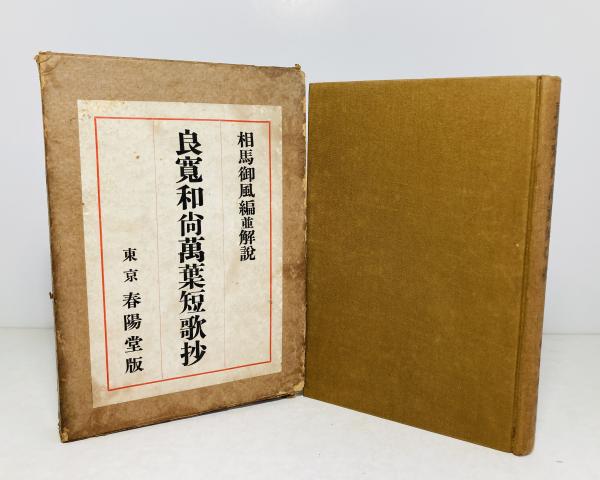 相馬御風編並解說
良寬和尙萬葉短歌抄
東京 春陽堂版